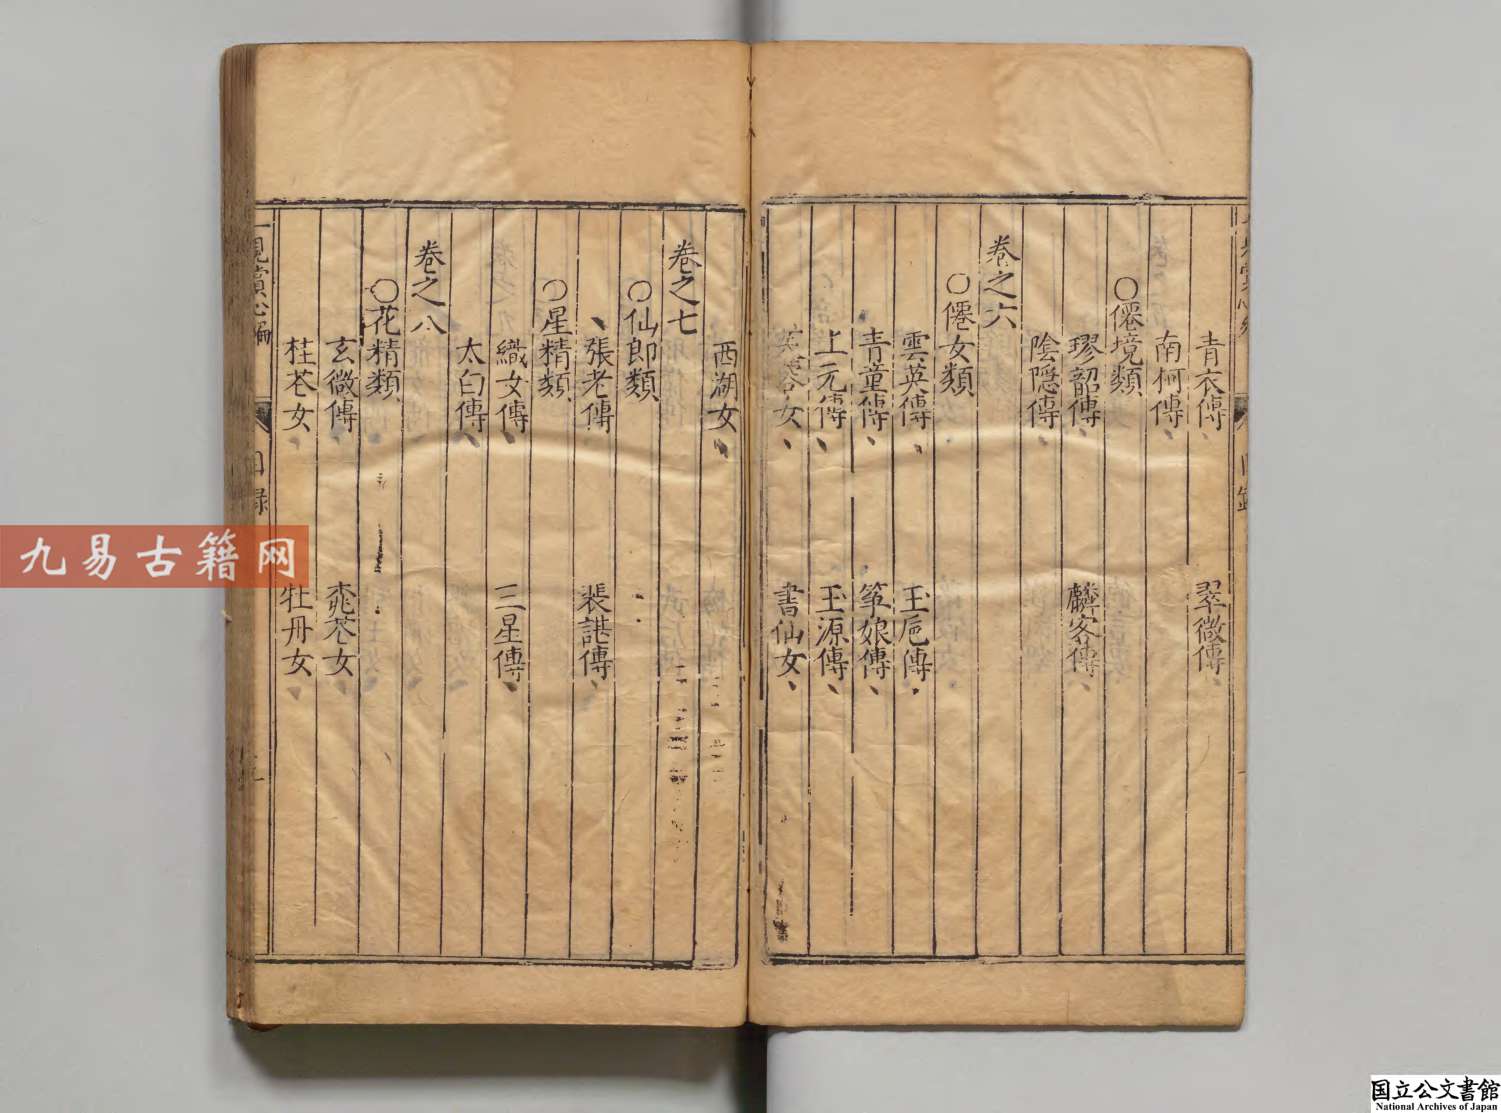 青衣傳 翠微傳
南柯傳
○僊境類
璆韶傳 麟客傳
陰隱傳
卷之六
○僊女類
雲英傳 玉巵傳
青童傳 筝娘傳
上元傳 玉源傳
芙蓉女 書仙女
西湖女
卷之七
○仙郎類
張老傳 裴諶傳
○星精類
織女傳 三星傳
太白傳
卷之八
○花精類
玄微傳 桃花女
桂花女 牡丹女
一見賞心編
目錄
九易古籍网
国立公文書館
National Archives of Japan